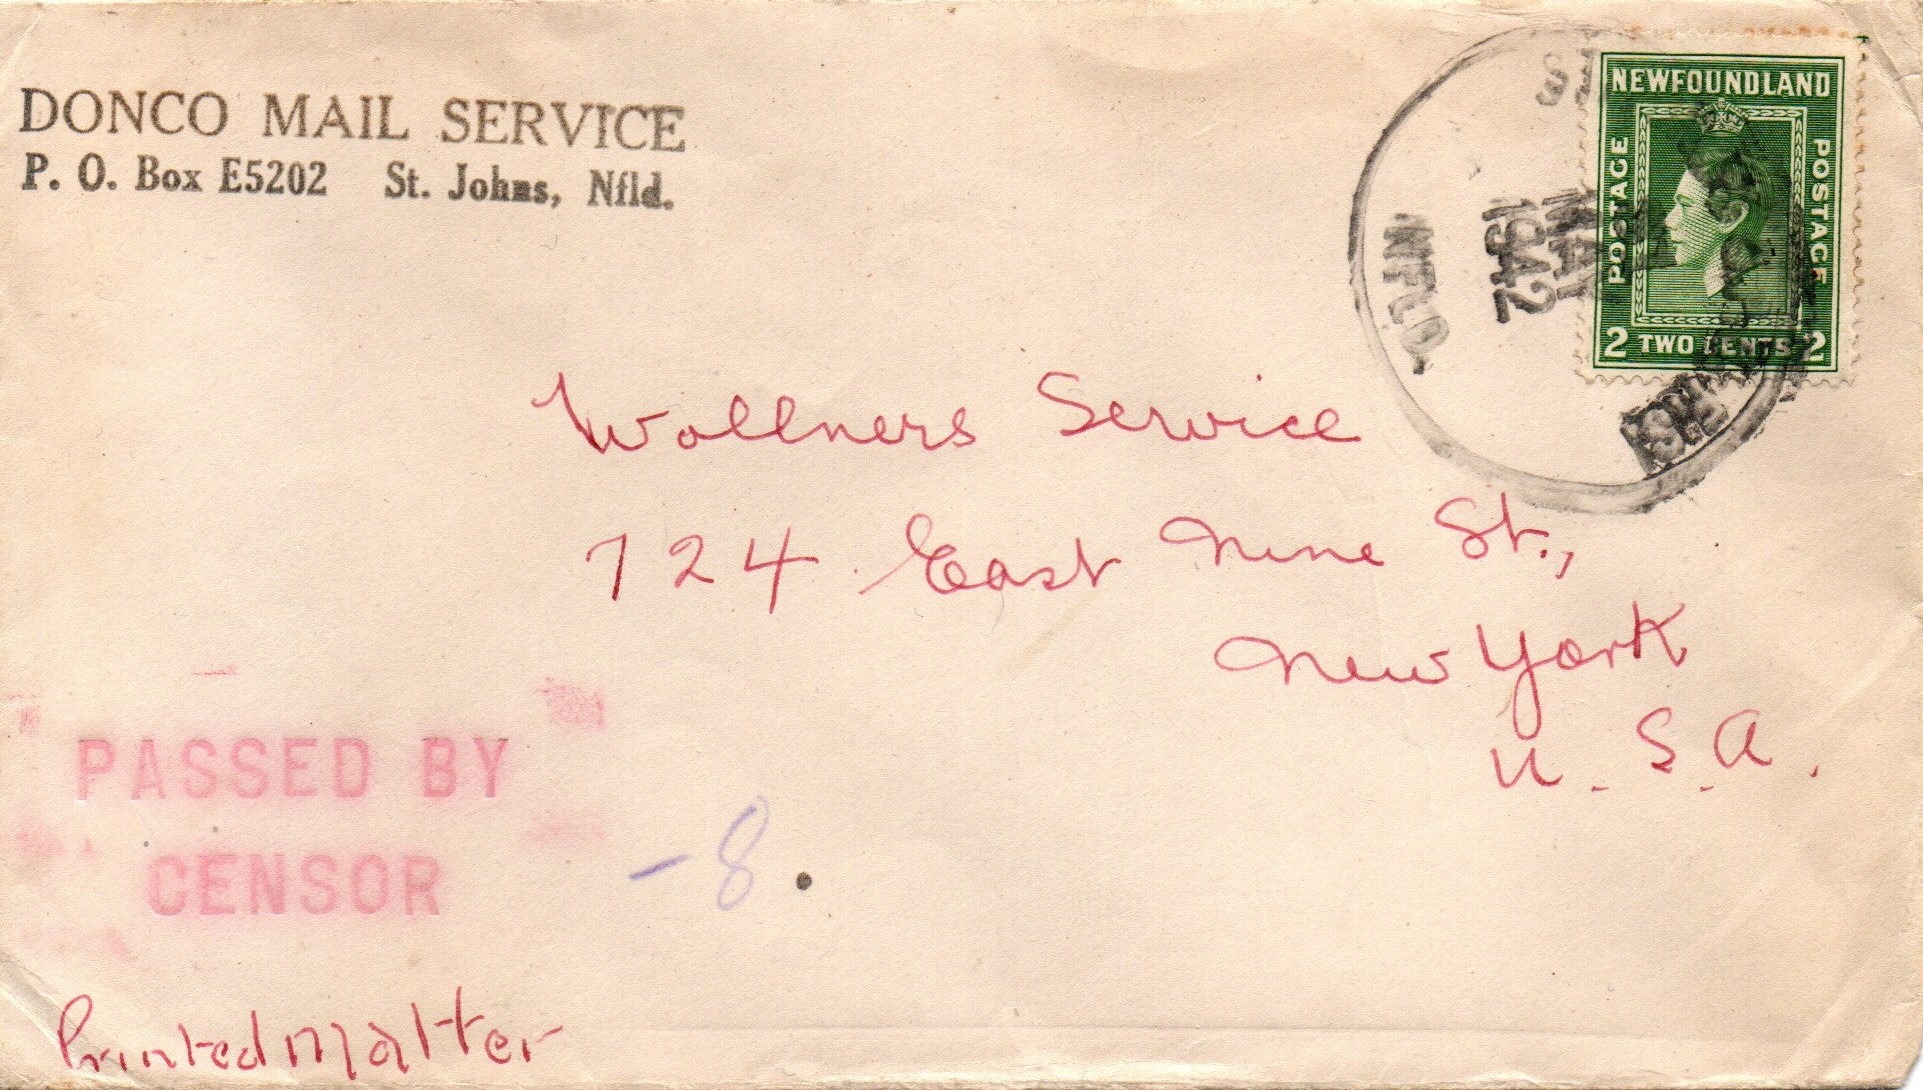 DONCO MAIL SERVICE
P. O. Box E5202 St. Johns, Nfld.
NEWFOUNDLAND
POSTAGE
POSTAGE
2 TWO CENTS 2
MAY
1942
NFLD.
Wollners Service
724 East Nine St.,
New York
U. S. A.
PASSED BY
CENSOR
- 8.
Printed Matter